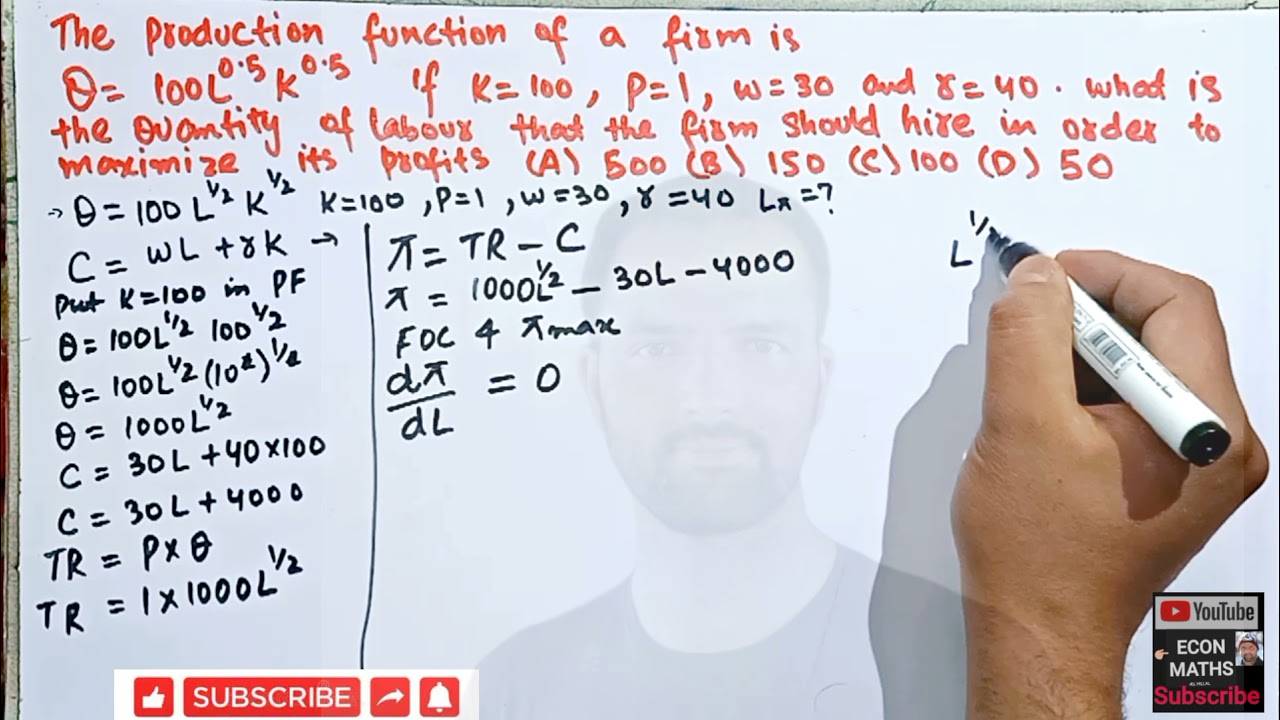 The production function of a firm is
Q = 100L^0.5 K^0.5 if K=100, P=1, w=30 and r=40. what is
the Quantity of labour that the firm should hire in order to
maximize its profits (A) 500 (B) 150 (C) 100 (D) 50
→ Q = 100 L^1/2 K^1/2 K=100, P=1, w=30, r=40 Lπ=?
C = wL + rK →
Put K=100 in PF
Q = 100L^1/2 100^1/2
Q = 100L^1/2 (10^2)^1/2
Q = 1000L^1/2
C = 30L + 40×100
C = 30L + 4000
TR = P×Q
TR = 1×1000L^1/2
π = TR - C
π = 1000L^1/2 - 30L - 4000
FOC 4 πmax
dπ/dL = 0
L^1/
SUBSCRIBE
YouTube
ECON
MATHS
Subscribe